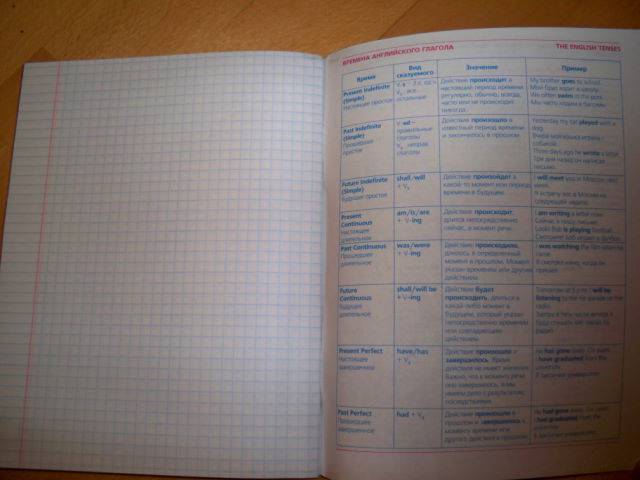 ВРЕМЕНА АНГЛИЙСКОГО ГЛАГОЛА THE ENGLISH TENSES
Время Вид сказуемого Значение Пример
Present Indefinite
(Simple)
Настоящее простое
Действие происходит в
настоящий период времени
регулярно, обычно, всегда,
часто или не происходит
никогда.
My brother goes to school.
Мой брат ходит в школу.
We often swim in the pool.
Мы часто ходим в бассейн.
Past Indefinite
(Simple)
Прошедшее
простое
V-ed –
правильные
глаголы
глаголы
Действие произошло в
известный период времени
и закончилось в прошлом.
Yesterday my cat played with a
dog.
Вчера моя кошка играла с
собакой.
Three days ago he wrote a letter.
Три дня назад он написал
письмо.
Future Indefinite
(Simple)
Будущее простое
shall/will
+ V
Действие произойдет в
какой-то момент или период
времени в будущем.
I will meet you in Moscow next
week.
Я встречу вас в Москве на
следующей неделе.
Present
Continuous
Настоящее
длительное
am/is/are
+ V-ing
Действие происходит,
длится непосредственно
сейчас, в момент речи.
I am writing a letter now.
Сейчас я пишу письмо.
Look! Bob is playing football.
Смотрите! Боб играет в футбол.
Past Continuous
Прошедшее
длительное
was/were
+ V-ing
Действие происходило,
длилось в определенный
момент в прошлом. Момент
указан временем или другим
действием.
I was watching the film when he
came.
Я смотрел кино, когда он
пришел.
Future
Continuous
Будущее
длительное
shall/will be
+ V-ing
Действие будет
происходить, длиться в
какой-либо момент в
будущем, который указан
непосредственно временем
или совпадающим
действием.
Tomorrow at 5 p.m. I will be
listening to the on the
radio.
Завтра в пять часов вечера я
буду слушать по
радио.
Present Perfect
Настоящее
завершенное
have/has
+ V3
Действие произошло и
завершилось. Время
действия не имеет значения.
Важно, что к моменту речи
оно завершилось, и мы
имеем дело с результатом,
последствиями.
He has gone away. Он уехал.
I have graduated from the
university.
Я закончил университет.
Past Perfect
Прошедшее
завершенное
had + V3
Действие произошло в
прошлом и завершилось к
моменту времени или
другого действия в прошлом.
He had gone away. Он уехал.
I had graduated from the
university.
Я закончил университет.